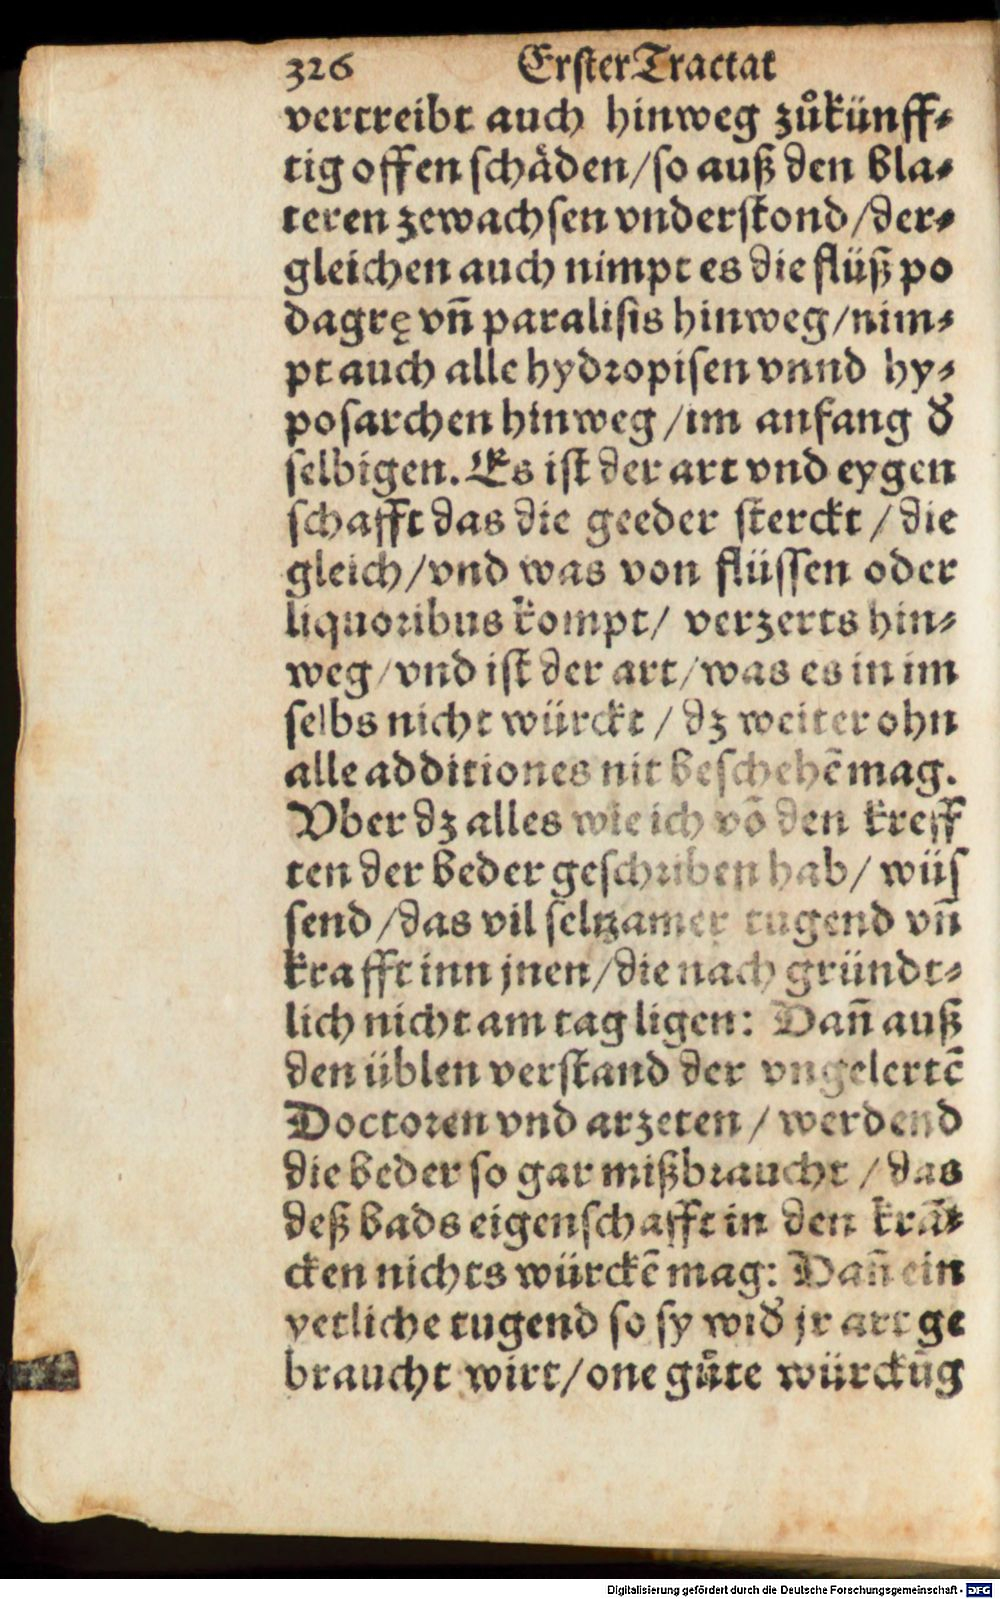 326 Erster Tractat
vertreibt auch hinweg zůkünff⸗
tig offen schäden/so auß den bla⸗
teren zewachsen vnderstond/der⸗
gleichen auch nimpt es die flüß po
dagrę vñ paralisis hinweg/nim⸗
pt auch alle hydropisen vnnd hy⸗
posarchen hinweg/im anfang d̕
selbigen. Es ist der art vnd eygen
schafft das die geeder sterckt/die
gleich/vnd was von flüssen oder
liquoribus kompt/ verzerts hin⸗
weg/vnd ist der art/was es in im
selbs nicht würckt/ dz weiter ohn
alle additiones nit beschehẽ mag.
Vber dz alles wie ich võ den kreff
ten der beder geschriben hab/ wüs
send/das vil seltzamer tugend vñ
krafft inn jnen/die nach gründt⸗
lich nicht am tag ligen: Dañ auß
den üblen verstand der vngelertẽ
Doctoren vnd arzeten/ werdend
die beder so gar mißbraucht/das
deß bads eigenschafft in den krãt⸗
cken nichts würckẽ mag: Dañ ein
yetliche tugend so sy wid̕ jr art ge
braucht wirt/one gůte würckũg
Digitalisierung gefördert durch die Deutsche Forschungsgemeinschaft - DFG